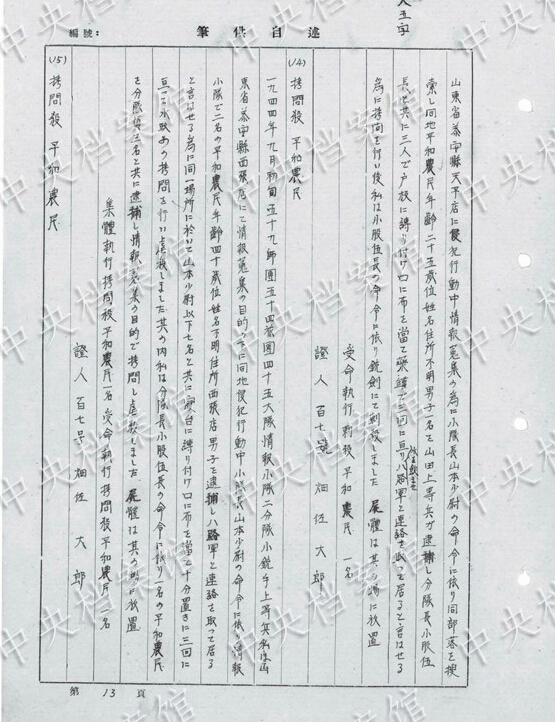 自述供筆
編號：
山東省泰安縣天平店に侵犯行動中情報蒐集の為に小隊長山本少尉の命令に依り同部落を捜
索し同地平和農民年齢二十五歳位姓名住所不明男子一名を山田上等兵が逮捕し分隊長小股伍
長と共に三人で戸板に縛り付け口に布を当て薬罐で三回に亘り水を飲ませ八路軍と連絡を取って居ると言はせる
為に拷問を行い後私は小股伍長の命令に依り銃剣にて刺殺しました 屍體は其の場に放置
受命執行刺殺平和農民 一名
證人 百七號 畑佐大郎
(14) 拷問殺平和農民
一九四四年九月初旬五十九師團五十四旅團四十五大隊情報小隊二分隊小銃手上等兵私は山
東省泰安縣西張店にて情報蒐集の目的の下に同地侵犯行動中小隊長山本少尉の命令に依り情報
小隊で二名の平和農民年齢四十歳位姓名不明住所西張店男子を逮捕し八路軍と連絡を取って居る
と言はせる為に同一場所に於いて山本少尉以下七名と共に寝台に縛り付け口に布を当て十分置きに三回に
亘って水攻めの拷問を行い虐殺しました其の内私は分隊長小股伍長の命令に依り一名の平和農民
を分隊員三名と共に逮捕し情報蒐集の目的で拷問し虐殺しました 屍體は其の場に放置
集體執行拷問殺平和農民一名 受命執行拷問殺平和農民一名
證人 百七号 畑佐大郎
(15) 拷問殺平和農民
第13頁
中央档案馆